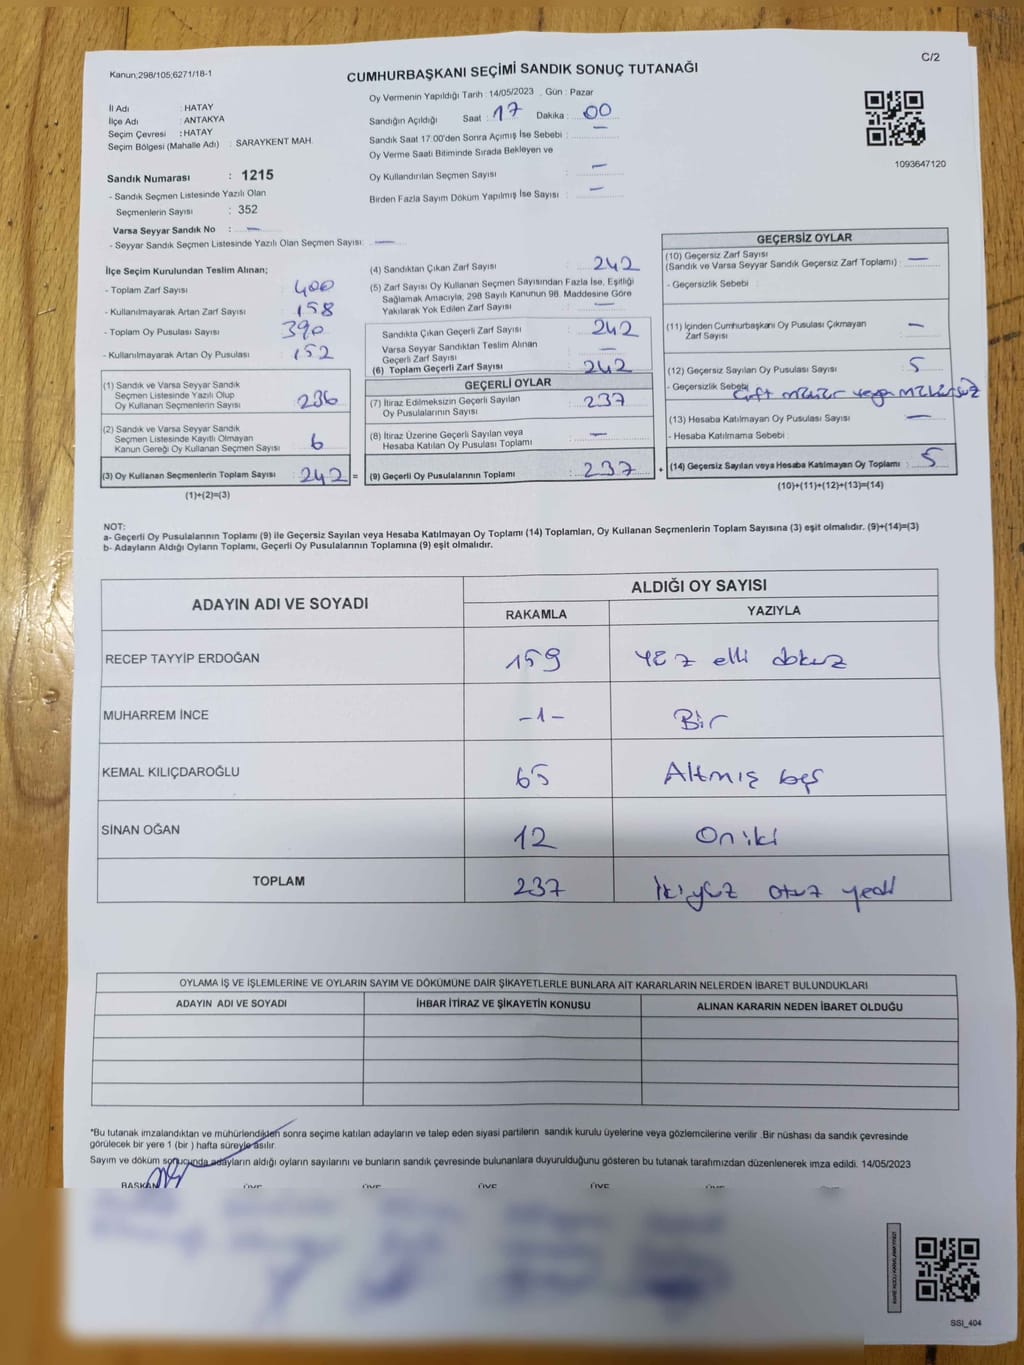 Kanun;298/105;6271/18-1
C/2
CUMHURBAŞKANI SEÇİMİ SANDIK SONUÇ TUTANAĞI
İl Adı : HATAY
İlçe Adı : ANTAKYA
Seçim Çevresi : HATAY
Seçim Bölgesi (Mahalle Adı) : SARAYKENT MAH.
Sandık Numarası : 1215
- Sandık Seçmen Listesinde Yazılı Olan
Seçmenlerin Sayısı : 352
Varsa Seyyar Sandık No : —
- Seyyar Sandık Seçmen Listesinde Yazılı Olan Seçmen Sayısı: —
Oy Vermenin Yapıldığı Tarih : 14/05/2023 , Gün : Pazar
Sandığın Açıldığı Saat : 17 Dakika : 00
Sandık Saat 17:00'den Sonra Açımış İse Sebebi : —
Oy Verme Saati Bitiminde Sırada Bekleyen ve
Oy Kullandırılan Seçmen Sayısı : —
Birden Fazla Sayım Döküm Yapılmış İse Sayısı : —
1093647120
İlçe Seçim Kurulundan Teslim Alınan;
- Toplam Zarf Sayısı : 400
- Kullanılmayarak Artan Zarf Sayısı : 158
- Toplam Oy Pusulası Sayısı : 390
- Kullanılmayarak Artan Oy Pusulası : 152
(1) Sandık ve Varsa Seyyar Sandık
Seçmen Listesinde Yazılı Olup
Oy Kullanan Seçmenlerin Sayısı : 236
(2) Sandık ve Varsa Seyyar Sandık
Seçmen Listesinde Kayıtlı Olmayan
Kanun Gereği Oy Kullanan Seçmen Sayısı : 6
(3) Oy Kullanan Seçmenlerin Toplam Sayısı : 242 =
(1)+(2)=(3)
(4) Sandıktan Çıkan Zarf Sayısı : 242
(5) Zarf Sayısı Oy Kullanan Seçmen Sayısından Fazla İse, Eşitliği
Sağlamak Amacıyla, 298 Sayılı Kanunun 98. Maddesine Göre
Yakılarak Yok Edilen Zarf Sayısı : —
Sandıkta Çıkan Geçerli Zarf Sayısı : 242
Varsa Seyyar Sandıktan Teslim Alınan
Geçerli Zarf Sayısı : —
(6) Toplam Geçerli Zarf Sayısı : 242
GEÇERLİ OYLAR
(7) İtiraz Edilmeksizin Geçerli Sayılan
Oy Pusulalarının Sayısı : 237
(8) İtiraz Üzerine Geçerli Sayılan veya
Hesaba Katılan Oy Pusulası Toplamı : —
(9) Geçerli Oy Pusulalarının Toplamı : 237 +
GEÇERSİZ OYLAR
(10) Geçersiz Zarf Sayısı
(Sandık ve Varsa Seyyar Sandık Geçersiz Zarf Toplamı) : —
- Geçersizlik Sebebi :
(11) İçinden Cumhurbaşkanı Oy Pusulası Çıkmayan
Zarf Sayısı : —
(12) Geçersiz Sayılan Oy Pusulası Sayısı : 5
- Geçersizlik Sebebi çift mühür veya mühürsüz
(13) Hesaba Katılmayan Oy Pusulası Sayısı : —
- Hesaba Katılmama Sebebi :
(14) Geçersiz Sayılan veya Hesaba Katılmayan Oy Toplamı : 5
(10)+(11)+(12)+(13)=(14)
NOT:
a- Geçerli Oy Pusulalarının Toplamı (9) ile Geçersiz Sayılan veya Hesaba Katılmayan Oy Toplamı (14) Toplamları, Oy Kullanan Seçmenlerin Toplam Sayısına (3) eşit olmalıdır. (9)+(14)=(3)
b- Adayların Aldığı Oyların Toplamı, Geçerli Oy Pusulalarının Toplamına (9) eşit olmalıdır.
ADAYIN ADI VE SOYADI
ALDIĞI OY SAYISI
RAKAMLA YAZIYLA
RECEP TAYYİP ERDOĞAN 159 yüz elli dokuz
MUHARREM İNCE -1- Bir
KEMAL KILIÇDAROĞLU 65 Altmış beş
SİNAN OĞAN 12 On iki
TOPLAM 237 İkiyüz otuz yedi
OYLAMA İŞ VE İŞLEMLERİNE VE OYLARIN SAYIM VE DÖKÜMÜNE DAİR ŞİKAYETLERLE BUNLARA AİT KARARLARIN NELERDEN İBARET BULUNDUKLARI
ADAYIN ADI VE SOYADI İHBAR İTİRAZ VE ŞİKAYETİN KONUSU ALINAN KARARIN NEDEN İBARET OLDUĞU
*Bu tutanak imzalandıktan ve mühürlendikten sonra seçime katılan adayların ve talep eden siyasi partilerin sandık kurulu üyelerine veya gözlemcilerine verilir .Bir nüshası da sandık çevresinde
görülecek bir yere 1 (bir ) hafta süreyle asılır.
Sayım ve döküm sonucunda adayların aldığı oyların sayılarını ve bunların sandık çevresinde bulunanlara duyurulduğunu gösteren bu tutanak tarafımızdan düzenlenerek imza edildi. 14/05/2023
BAŞKAN ÜYE ÜYE ÜYE ÜYE ÜYE
SSI_404